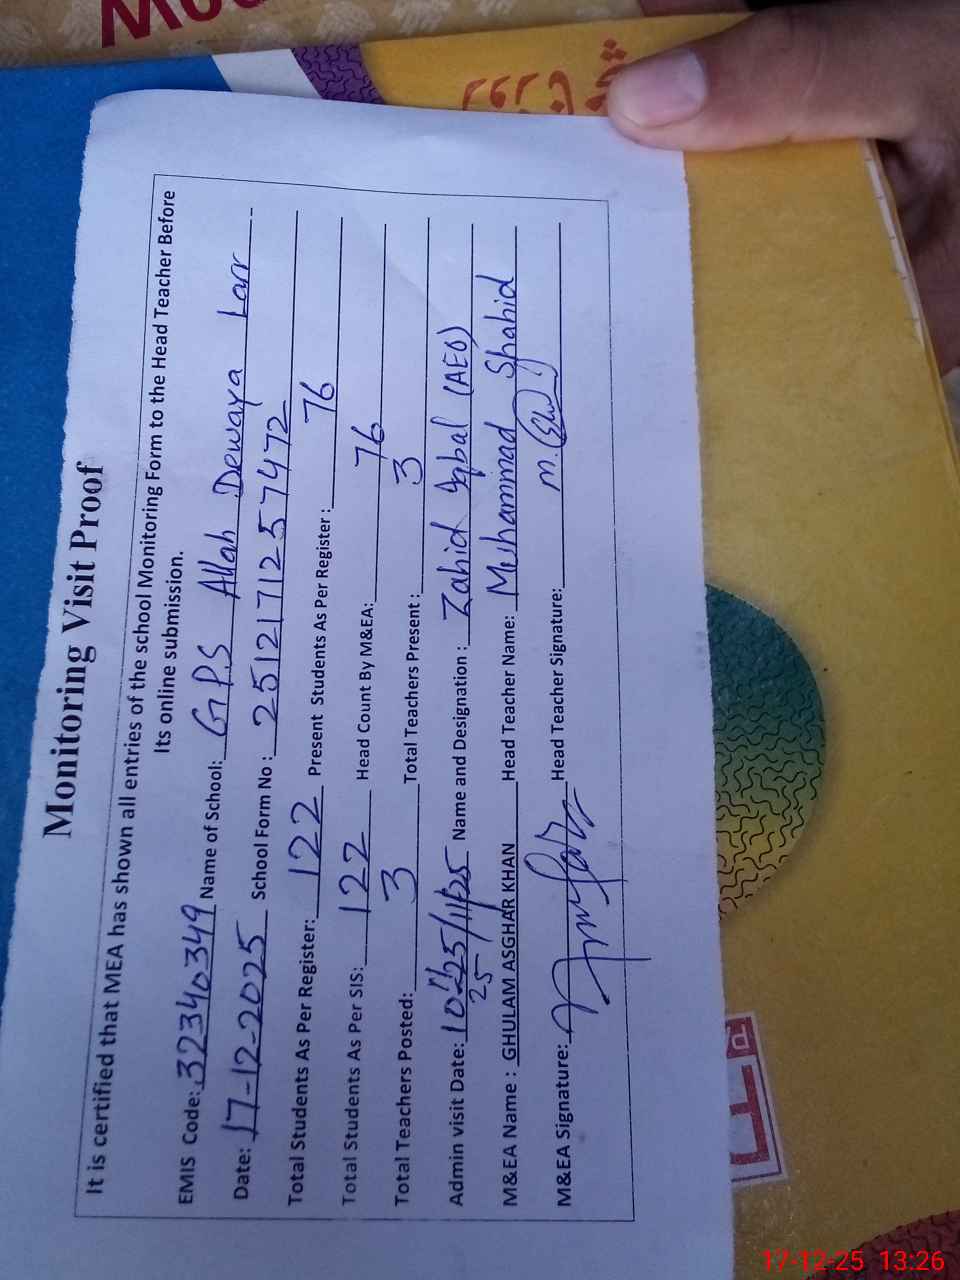 Monitoring Visit Proof
It is certified that MEA has shown all entries of the school Monitoring Form to the Head Teacher Before
Its online submission.
EMIS Code: 32340349 Name of School: G.P.S Allah Dewaya Larr
Date: 17-12-2025 School Form No : 2512171125 7472
Total Students As Per Register: 122 Present Students As Per Register : 76
Total Students As Per SIS: 122 Head Count By M&EA: 76
Total Teachers Posted: 3 Total Teachers Present : 3
Admin visit Date: Name and Designation : Zahid Iqbal (AEO)
M&EA Name : GHULAM ASGHAR KHAN Head Teacher Name: Muhammad Shahid
M&EA Signature: Head Teacher Signature: M.
17-12-25 13:26